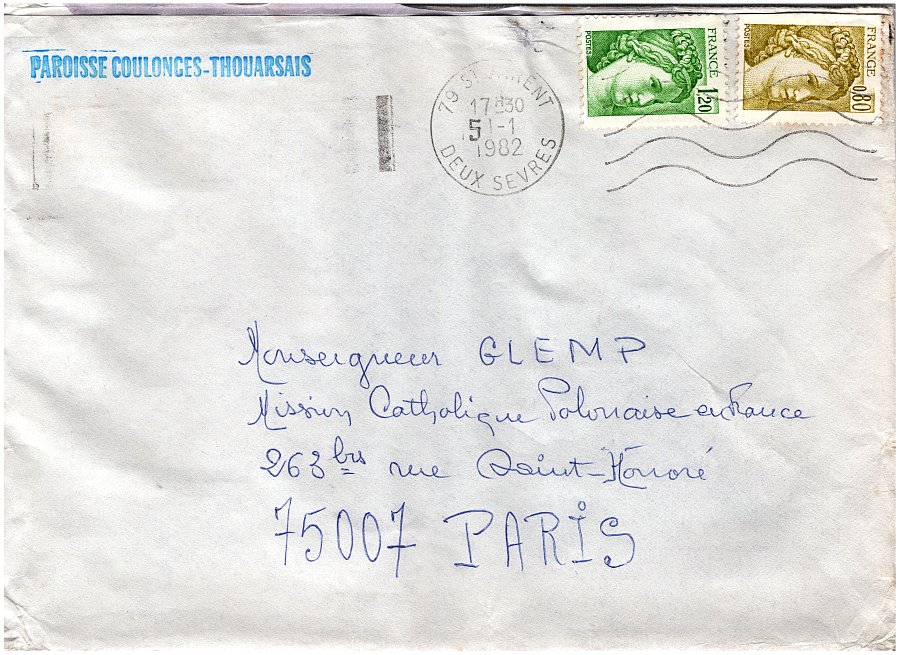 PAROISSE COULONGES-THOUARSAIS
79 ST VARENT
17H30
5 1-1
1982
DEUX SEVRES
POSTES FRANCE 1,20
POSTES FRANCE 0,80
Monseigneur GLEMP
Mission Catholique Polonaise en France
263 bis rue Saint-Honoré
75007 PARIS